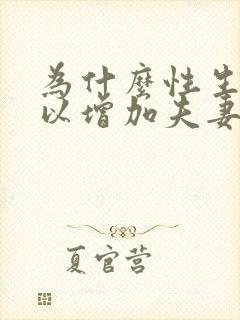 為什麼性生
以增加夫妻
夏官营